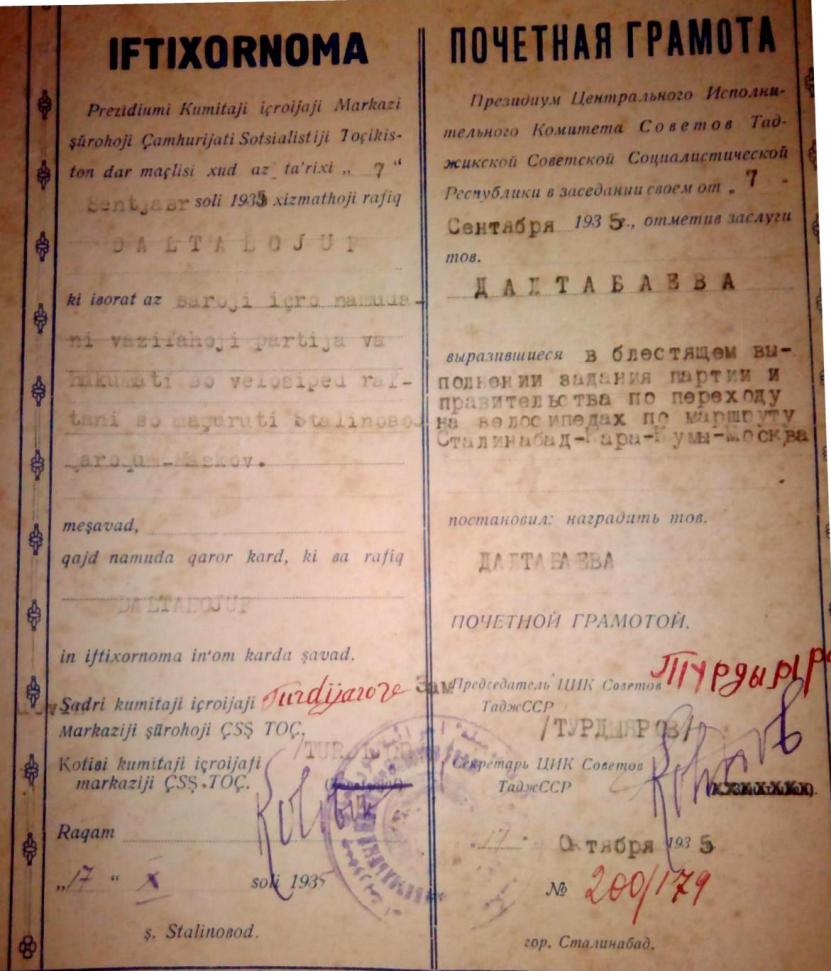 IFTIXORNOMA
Prezidiumi Kumitaji içroijaji Markazi
şūrohoji Çamhurijati Sotsialistiji Toçikis-
ton dar maçlisi xud az ta'rixi „ 7 “
Sentjabr soli 1935 xizmathoji rafiq
DALTABOJUF
ki iborat az baroji içro namuda-
ni vazifahoji partija va
hukumati bo velosiped raf-
tani bo marşruti Stalinobod
meşavad,
qajd namuda qaror kard, ki ba rafiq
DALTABOJUF
in iftixornoma in'om karda şavad.
Sadri kumitaji içroijaji Turdijarove
Markaziji şūrohoji ÇSŞ TOÇ.
Kotibi kumitaji içroijaji
markaziji ÇSŞ TOÇ.
Raqam
„17 “ X soli 1935
ş. Stalinobod.
ПОЧЕТНАЯ ГРАМОТА
Президиум Центрального Исполни-
тельного Комитета Советов Тад-
жикской Советской Социалистической
Республики в заседании своем от „ 7 -
Сентября 1935 г., отметив заслуги
тов.
ДАЛТАБАЕВА
выразившиеся в блестящем вы-
полнении задания партии и
правительства по переходу
на велосипедах по маршруту
Сталинабад-Кара-Кумы-Москва
постановил: наградить тов.
ДАЛТАБАЕВА
ПОЧЕТНОЙ ГРАМОТОЙ.
Зам Председатель ЦИК Советов
ТаджССР
/ТУРДЫЯРОВ/
Секретарь ЦИК Советов
ТаджССР
„17 Октября 1935
№ 200/179
гор. Сталинабад.